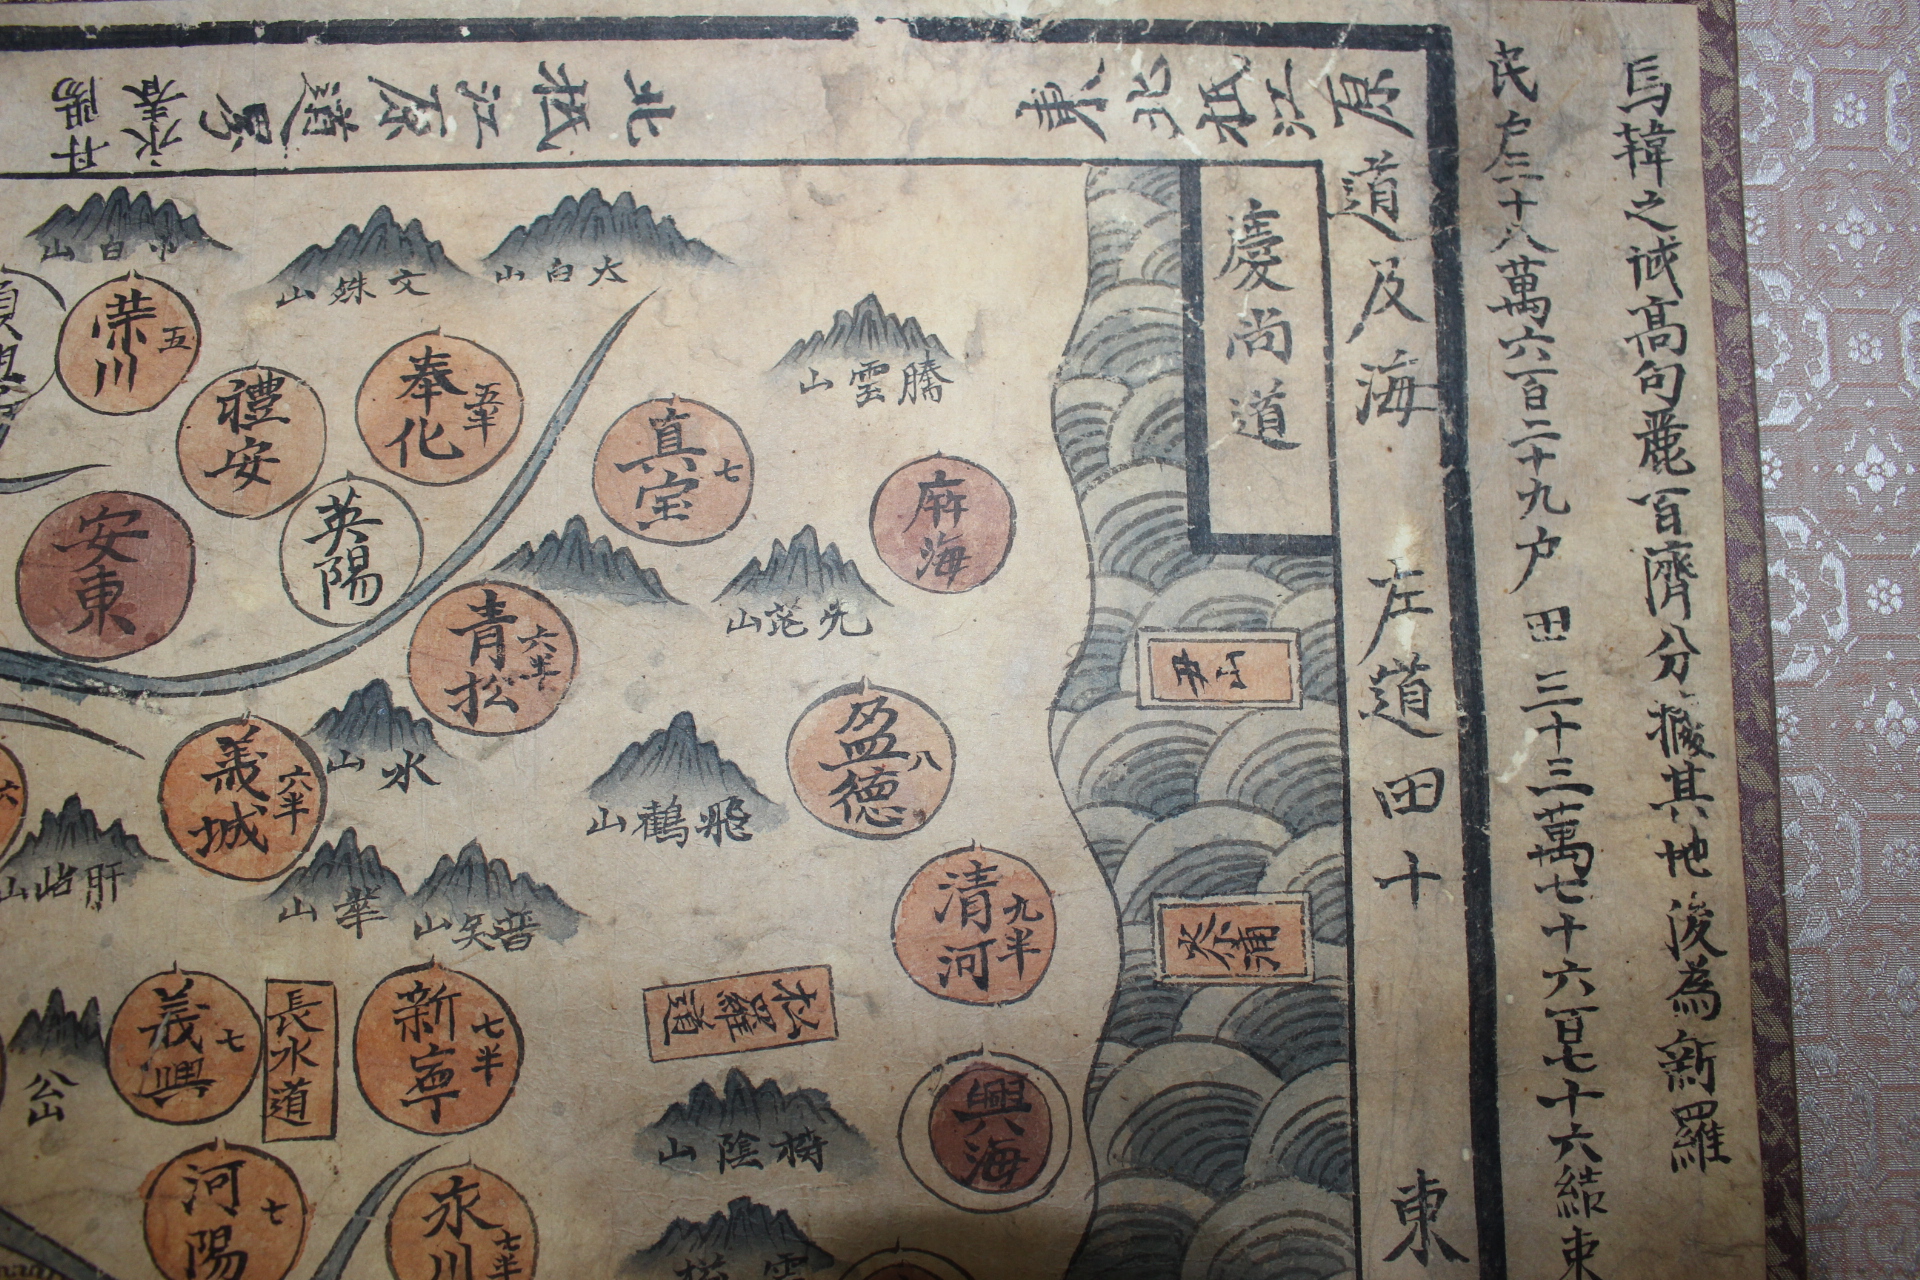 馬韓之誠高句麗百濟分據其地後為新羅
民戶三十八萬六百二十九戶田三十三萬七十六百七十六結東
東北抵江原
道及海
左道田十
東
北抵江原道
永春
丹陽
慶尚道
小白山
文殊山
太白山
騰雲山
榮川 五
禮安
奉化 五半
真宝 七
英陽
安東
海
青松 六半
山
盈德 八
義城 六半
水山
飛鶴山
清河 九半
山
華山
普賢山
松羅道
義興 七
長水道
新寧 七半
公山
興海
陰山
河陽 七
永川 七半
雲